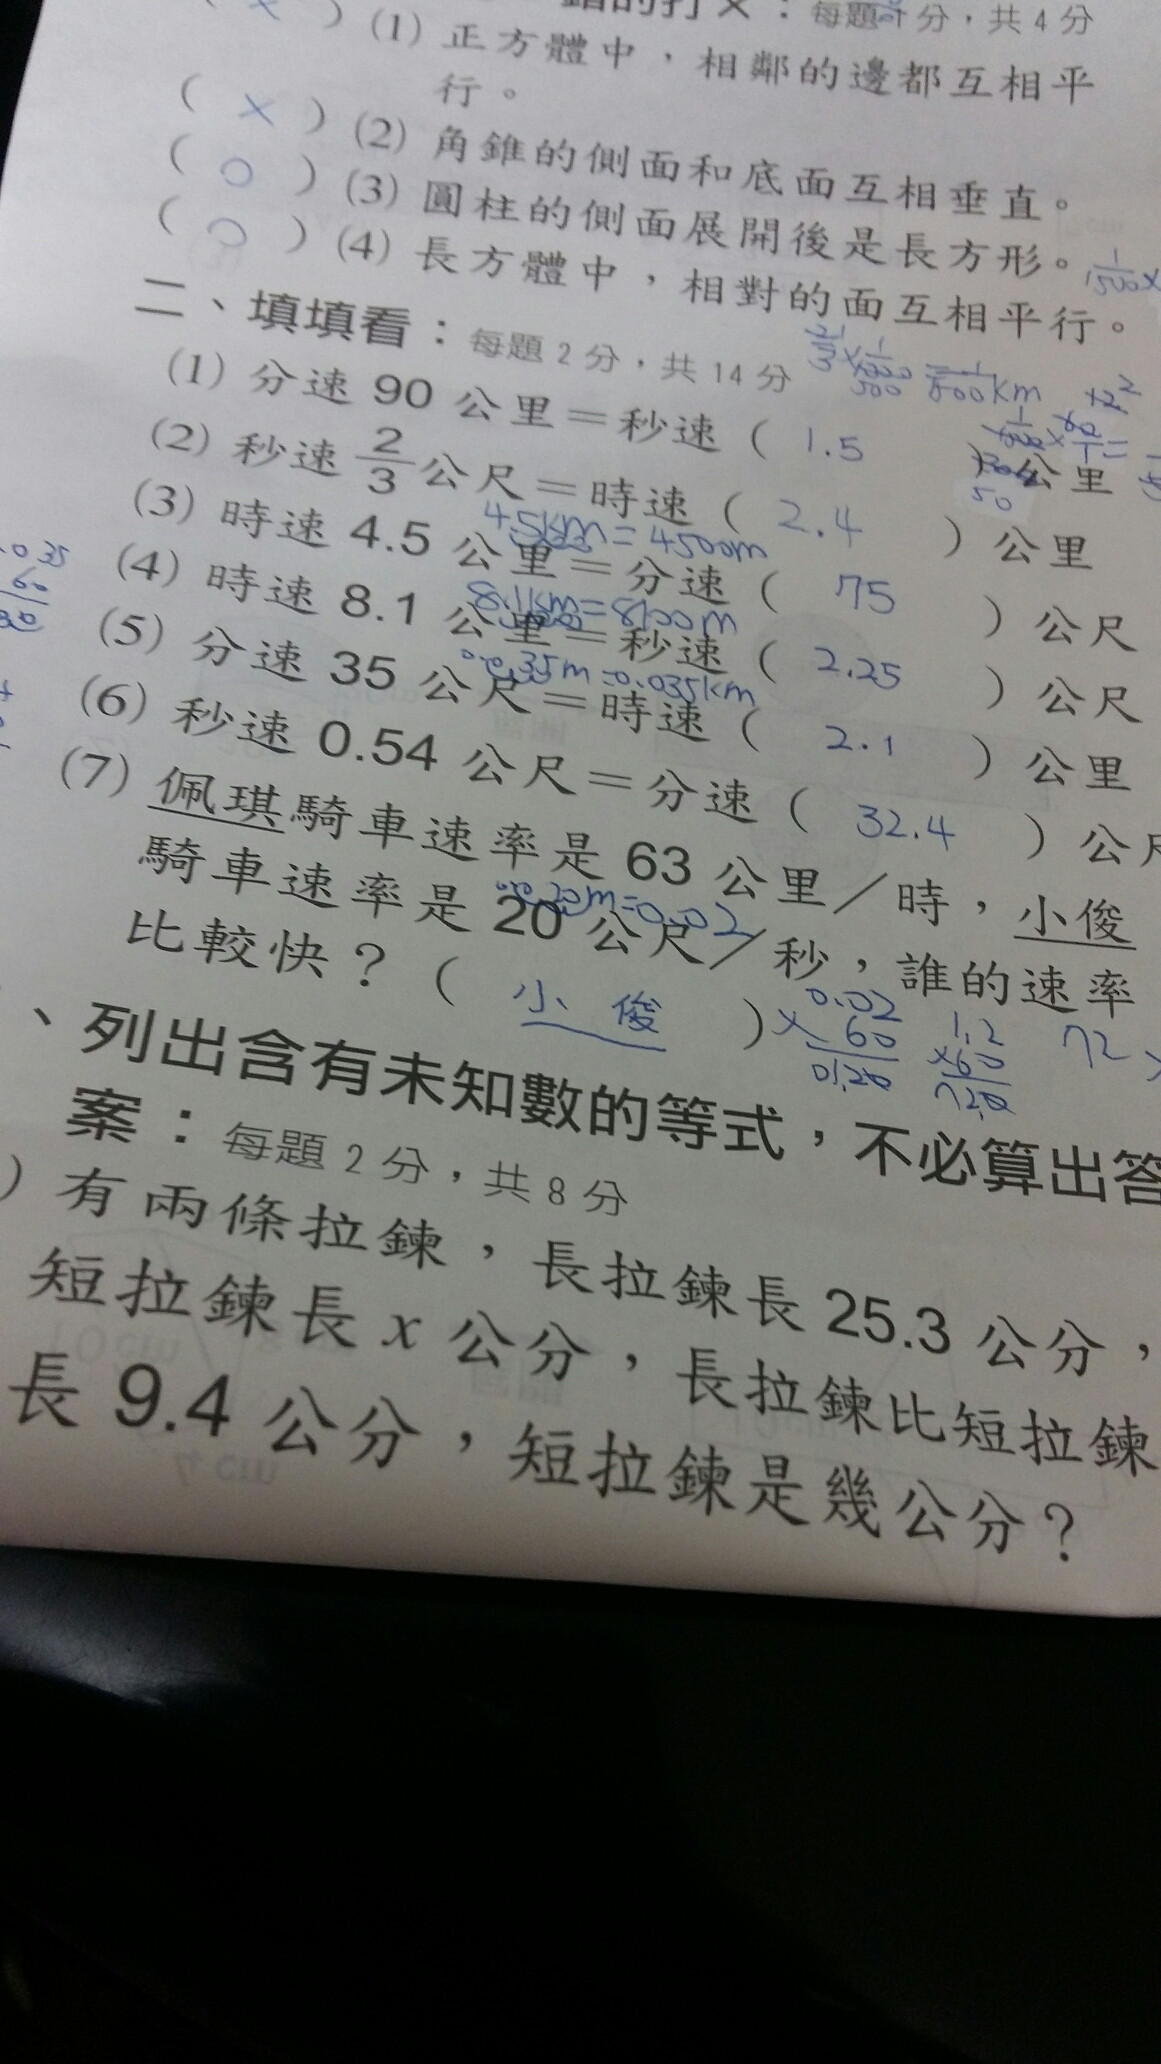 錯的打×：每題1分，共4分
( × ) (1) 正方體中，相鄰的邊都互相平
行。
( × ) (2) 角錐的側面和底面互相垂直。
( ○ ) (3) 圓柱的側面展開後是長方形。
( ○ ) (4) 長方體中，相對的面互相平行。
二、填填看：每題2分，共14分
(1) 分速 90 公里＝秒速( 1.5 )公里
(2) 秒速 2/3 公尺＝時速( 2.4 )公里
4.5km=4500m
(3) 時速 4.5 公里＝分速( 75 )公尺
8.1km=8100m
(4) 時速 8.1 公里＝秒速( 2.25 )公尺
35m=0.035km
(5) 分速 35 公尺＝時速( 2.1 )公里
(6) 秒速 0.54 公尺＝分速( 32.4 )公尺
(7) 佩琪騎車速率是 63 公里／時，小俊
騎車速率是 20 公尺／秒，誰的速率
比較快？( 小俊 )
0.02
×60
01.20
1.2
×60
72.0
72
、列出含有未知數的等式，不必算出答
案：每題2分，共8分
) 有兩條拉鍊，長拉鍊長 25.3 公分，
短拉鍊長 x 公分，長拉鍊比短拉鍊
長 9.4 公分，短拉鍊是幾公分？